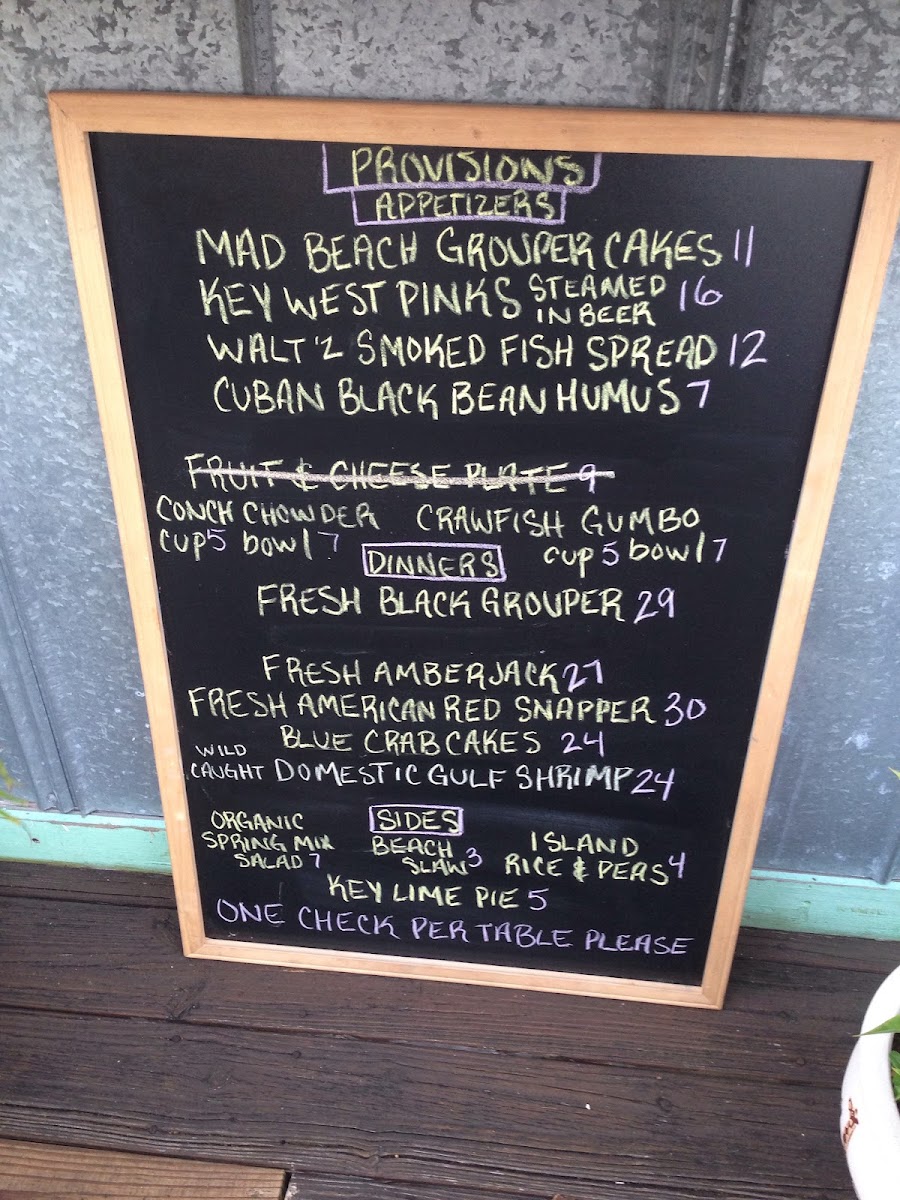 PROVISIONS
APPETIZERS
MAD BEACH GROUPER CAKES 11
KEY WEST PINKS STEAMED IN BEER 16
WALT'Z SMOKED FISH SPREAD 12
CUBAN BLACK BEAN HUMUS 7
FRUIT & CHEESE PLATE 9
CONCH CHOWDER CRAWFISH GUMBO
cup 5 bowl 7 cup 5 bowl 7
DINNERS
FRESH BLACK GROUPER 29
FRESH AMBERJACK 27
FRESH AMERICAN RED SNAPPER 30
BLUE CRAB CAKES 24
WILD CAUGHT DOMESTIC GULF SHRIMP 24
SIDES
ORGANIC SPRING MIX SALAD 7
BEACH SLAW 3
ISLAND RICE & PEAS 4
KEY LIME PIE 5
ONE CHECK PER TABLE PLEASE